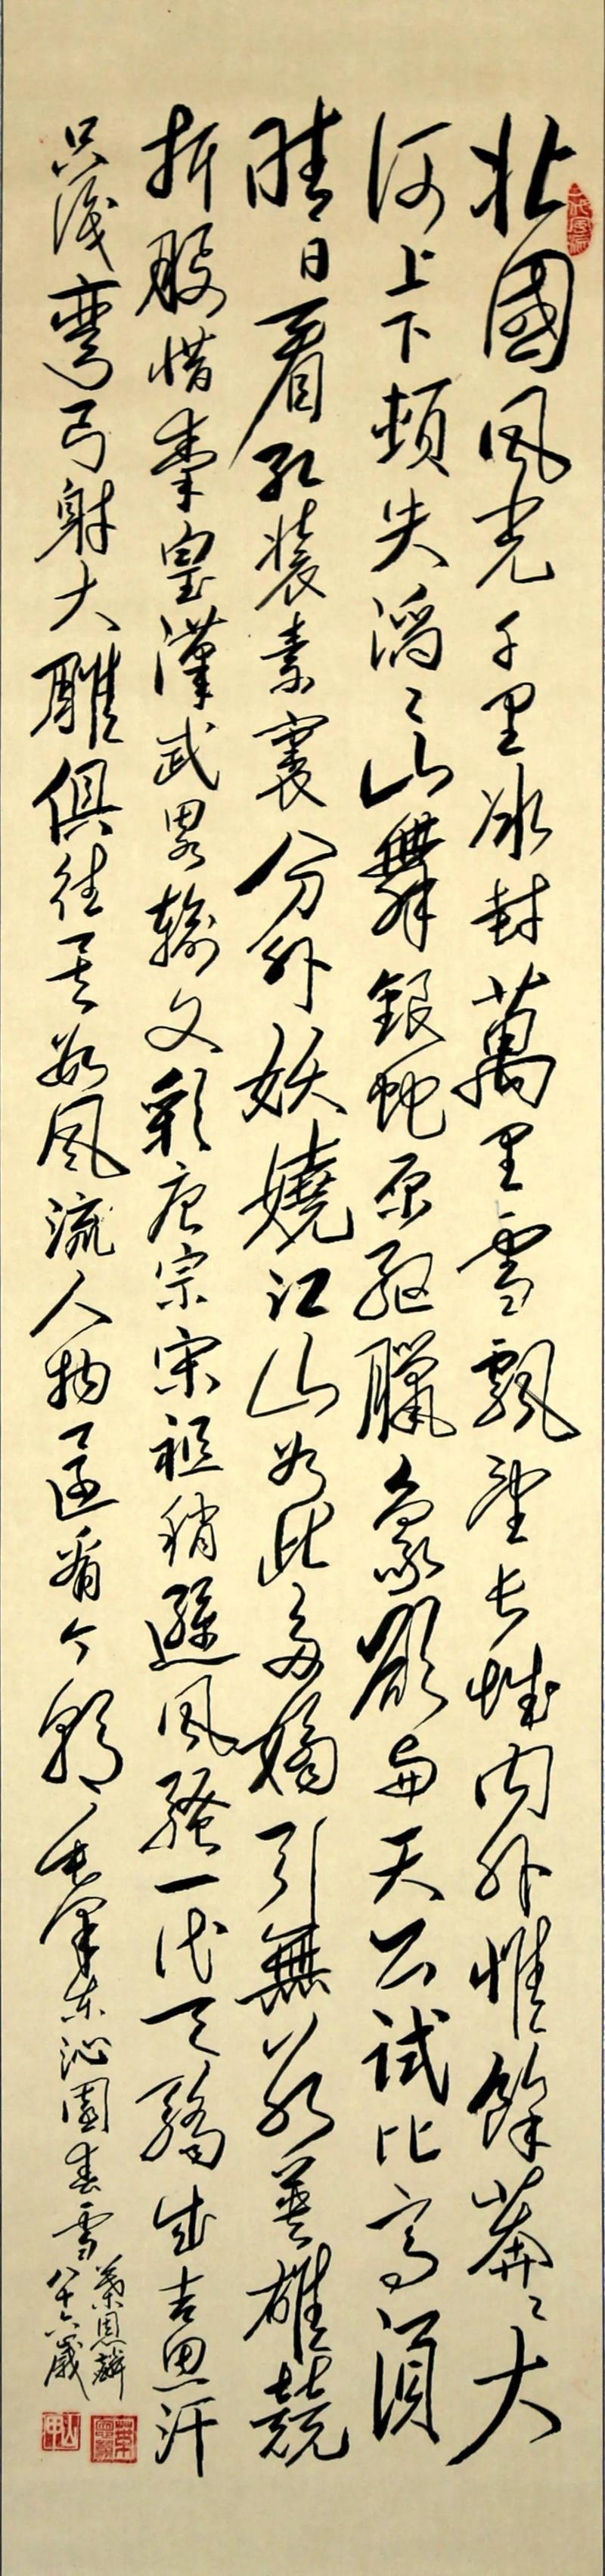 北國風光千里冰封萬里雪飄望長城內外惟餘莽〻大
河上下頓失滔〻山舞銀蛇原驅臘象欲與天公試比高須
晴日看紅裝素裹分外妖嬈江山如此多嬌引無數英雄競
折腰惜秦皇漢武畧輸文彩唐宗宋祖稍遜風騷一代天驕成吉思汗
只識彎弓射大雕俱往矣數風流人物還看今朝毛澤東沁園春雪
葉恩麟
八十六歲